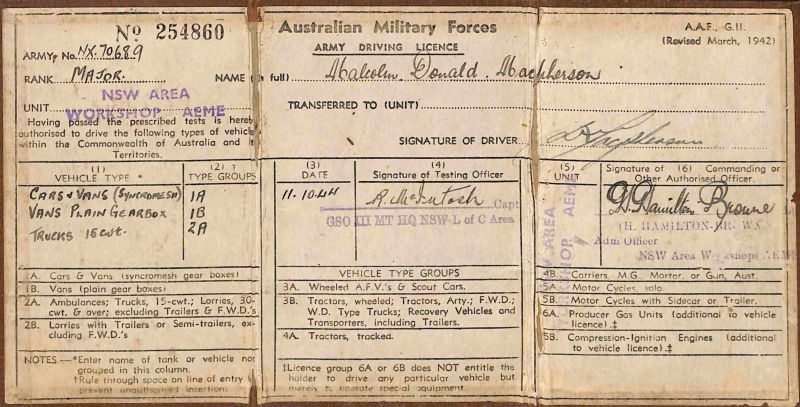 No 254860
Australian Military Forces
A.A.F., G.11.
(Revised March, 1942)
ARMY DRIVING LICENCE
ARMY No. NX.70689
RANK MAJOR. NAME (in full) Malcolm Donald Macpherson
NSW AREA
UNIT WORKSHOP AEME TRANSFERRED TO (UNIT)
Having passed the prescribed tests is hereby
authorised to drive the following types of vehicle
within the Commonwealth of Australia and its
Territories.
SIGNATURE OF DRIVER
(1) VEHICLE TYPE *
(2) † TYPE GROUPS
(3) DATE
(4) Signature of Testing Officer
(5) UNIT
(6) Signature of Commanding or
Other Authorised Officer.
CARS & VANS (SYNCROMESH) 1A
VANS PLAIN GEARBOX 1B
TRUCKS 15 CWT. 2A
11.10.44
A. McIntosh Capt
GSO III MT HQ NSW L of C Area
NSW AREA
WORKSHOP AEME
H. Hamilton Browne
(H. HAMILTON-BROWNE)
Adm Officer
NSW Area Workshops AEME
1A. Cars & Vans (syncromesh gear boxes)
1B. Vans (plain gear boxes)
2A. Ambulances; Trucks, 15-cwt.; Lorries, 30-
cwt. & over; excluding Trailers & F.W.D.'s
2B. Lorries with Trailers or Semi-trailers, ex-
cluding F.W.D.'s
NOTES.—*Enter name of tank or vehicle not
grouped in this column.
†Rule through space on line of entry to
prevent unauthorised insertions.
VEHICLE TYPE GROUPS
3A. Wheeled A.F.V.'s & Scout Cars.
3B. Tractors, wheeled; Tractors, Arty.; F.W.D.;
W.D. Type Trucks; Recovery Vehicles and
Transporters, including Trailers.
4A. Tractors, tracked.
‡Licence group 6A or 6B does NOT entitle the
holder to drive any particular vehicle but
merely to operate special equipment.
4B. Carriers, M.G., Mortar, or Gun, Aust.
5A. Motor Cycles, solo
5B. Motor Cycles with Sidecar or Trailer.
6A. Producer Gas Units (additional to vehicle
licence).‡
6B. Compression-Ignition Engines (additional
to vehicle licence).‡